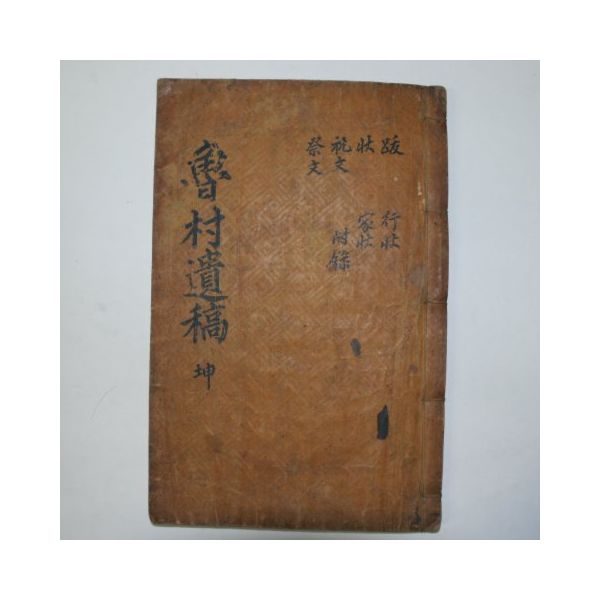 跋 行狀
狀 家狀
祝文 附錄
祭文
魯村遺稿 坤